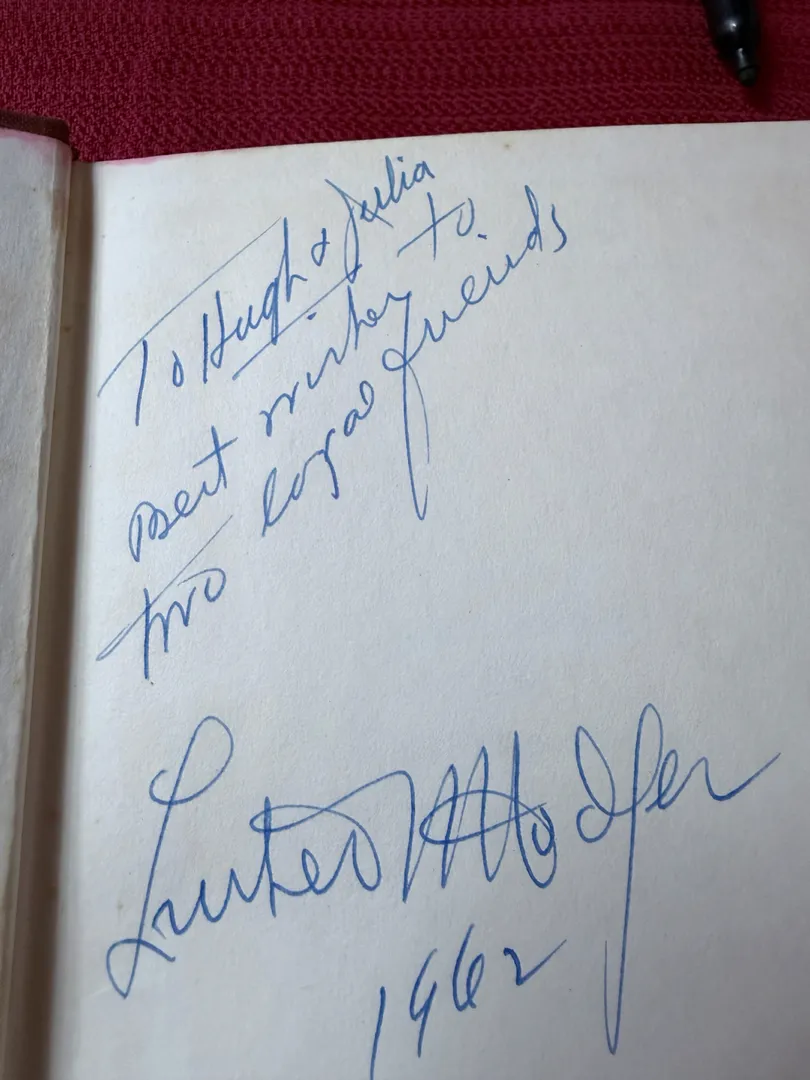 To Hugh & Julia
Best wishes to
two loyal friends
Luther H Hodges
1962